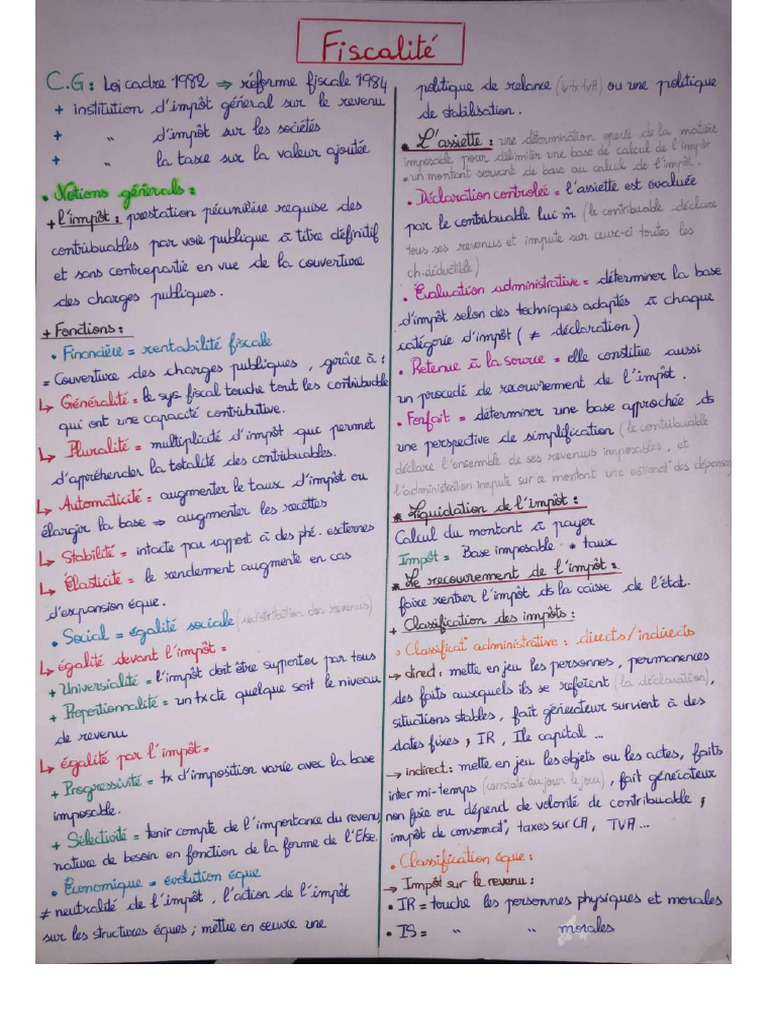 Fiscalité
C.G : Loi cadre 1982 ⇒ réforme fiscale 1984
+ institution d'impôt général sur le revenu
+ " d'impôt sur les sociétés
+ " la taxe sur la valeur ajoutée
• Notions générals :
+ l'impôt : prestation pécunière requise des
contribuables par voie publique à titre définitif
et sans contrepartie en vue de la couverture
des charges publiques.
+ Fonctions :
• Financière = rentabilité fiscale
= Couverture des charges publiques, grâce à :
↳ Généralité = le sys fiscal touche tout les contribuable
qui ont une capacité contributive.
↳ Pluralité = multiplicité d'impôt que permet
d'appréhender la totalité des contribuables.
↳ Automaticité = augmenter le taux d'impôt ou
élargir la base ⇒ augmenter les recettes
↳ Stabilité = intacte par rapport à des phé. externes
↳ Élasticité = le rendement augmente en cas
d'expansion éque.
• Social = égalité sociale (redistribution des revenus)
↳ égalité devant l'impôt =
+ Universialité = l'impôt doit être supporter par tous
+ Proportionnalité = un tx cte quelque soit le niveau
de revenu
↳ égalité par l'impôt =
+ Progressivité = tx d'imposition varie avec la base
imposable.
+ Sélectivité = tenir compte de l'importance du revenu,
nature de besoin en fonction de la forme de l'Else.
• Économique = évolution éque
≠ neutralité de l'impôt, l'action de l'impôt
sur les structures éques ; mettre en œuvre une
politique de relance (↓ tx tvA) ou une politique
de stabilisation.
* L'assiette : une détermination opérée de la matière
imposable pour délimiter une base de calcul de l'impôt
= un montant servant de base au calcul de l'impôt.
• Déclaration controleé = l'assiette est évaluée
par le contribuable lui m̂ (le contribuable déclare
tous ses revenus et impute sur ceux-ci toutes les
ch. déductible)
• Évaluation administrative = déterminer la base
d'impôt selon des techniques adaptés à chaque
catégorie d'impôt (≠ déclaration)
• Retenue à la source = elle constitue aussi
un procedé de recouvrement de l'impôt.
• Forfait = déterminer une base approchée ds
une perspective de simplification (le contribuable
déclare l'ensemble de ses revenus imposables, et
l'administration impute sur ce montant une des dépenses
* Liquidation de l'impôt :
Calcul du montant à payer
Impôt = Base imposable * taux
* Le recouvrement de l'impôt :
faire rentrer l'impôt ds la caisse de l'état.
+ Classification des impôts :
• Classificat° administrative : directs/indirects
→ direct : mettre en jeu les personnes, permanences
des faits auxquels ils se refèrent (la déclaration),
situations stables, fait générateur survient à des
dates fixes, IR, Ile capital ...
→ indirect : mettre en jeu les objets ou les actes, faits
inter mi-temps (constaté au jour le jour), fait générateur
non fixe ou dépend de volonté de contribuable,
impôt de consomat°, taxes sur CA, TVA ...
• Classification éque :
→ Impôt sur le revenu :
• IR = touche les personnes physiques et morales
• IS = " " morales